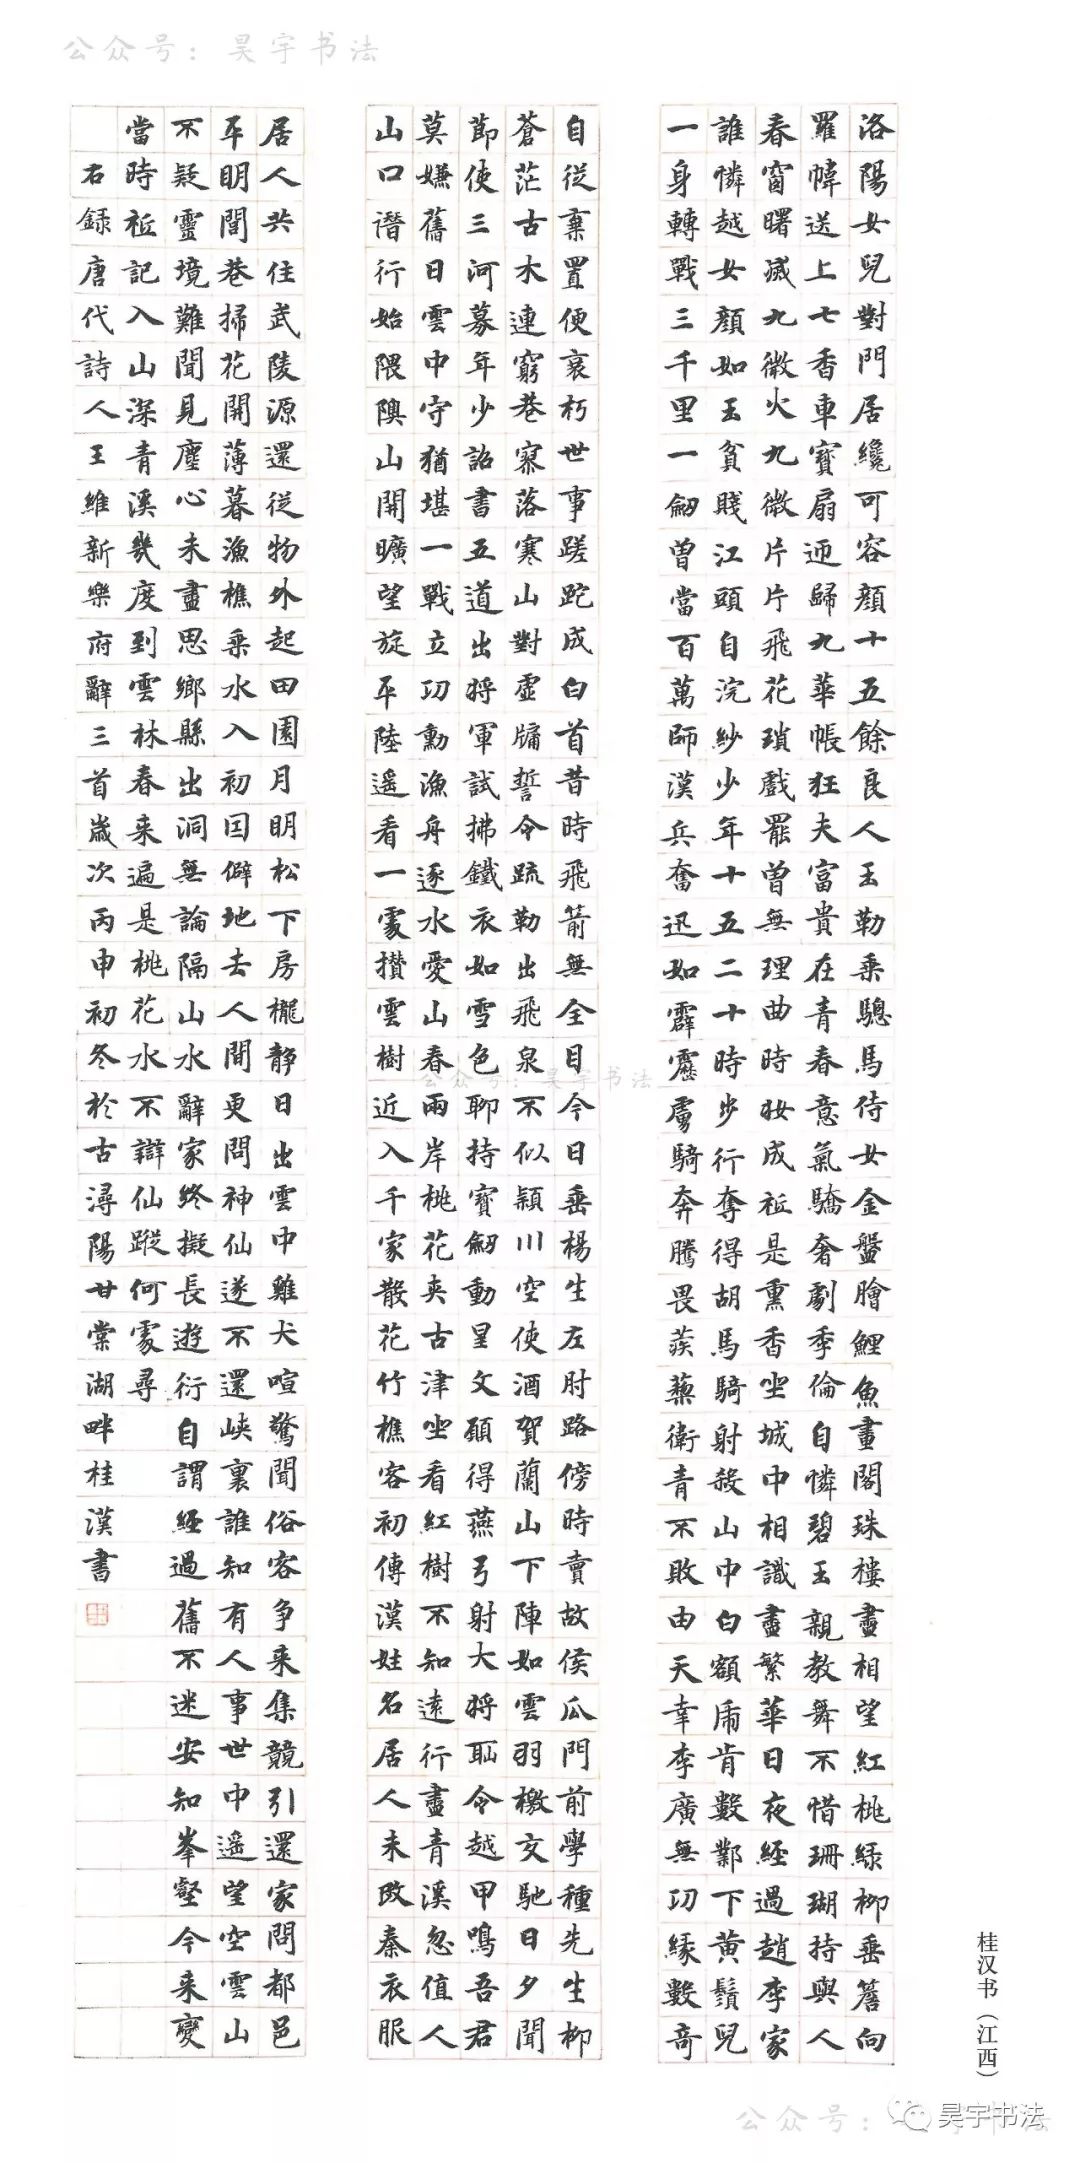 公众号：昊宇书法
洛陽女兒對門居纔可容顏十五餘良人玉勒乘驄馬侍女金盤膾鯉魚畫閣珠樓盡相望紅桃綠柳垂簷向
羅幃送上七香車寶扇迎歸九華帳狂夫富貴在青春意氣驕奢劇季倫自憐碧玉親教舞不惜珊瑚持與人
春窗曙滅九微火九微片片飛花瑣戲罷曾無理曲時妝成祗是熏香坐城中相識盡繁華日夜經過趙李家
誰憐越女顏如玉貧賤江頭自浣紗少年十五二十時步行奪得胡馬騎射殺山中白額虎肯數鄴下黃鬚兒
一身轉戰三千里一劍曾當百萬師漢兵奮迅如霹靂虜騎奔騰畏蒺藜衛青不敗由天幸李廣無功緣數奇
自從棄置便衰朽世事蹉跎成白首昔時飛箭無全目今日垂楊生左肘路傍時賣故侯瓜門前學種先生柳
蒼茫古木連窮巷寥落寒山對虛牖誓令疏勒出飛泉不似潁川空使酒賀蘭山下陣如雲羽檄交馳日夕聞
節使三河募年少詔書五道出將軍試拂鐵衣如雪色聊持寶劍動星文願得燕弓射大將恥令越甲鳴吾君
莫嫌舊日雲中守猶堪一戰立功勳漁舟逐水愛山春兩岸桃花夾古津坐看紅樹不知遠行盡青溪忽值人
山口潛行始隈隩山開曠望旋平陸遙看一處攢雲樹近入千家散花竹樵客初傳漢姓名居人未改秦衣服
居人共住武陵源還從物外起田園月明松下房櫳靜日出雲中雞犬喧驚聞俗客爭來集競引還家問都邑
平明閭巷掃花開薄暮漁樵乘水入初因僻地去人間更問神仙遂不還峽裏誰知有人事世中遙望空雲山
不疑靈境難聞見塵心未盡思鄉縣出洞無論隔山水辭家終擬長遊衍自謂經過舊不迷安知峯壑今來變
當時祗記入山深青溪幾度到雲林春來遍是桃花水不辯仙蹤何處尋
右録唐代詩人王維新樂府辭三首歲次丙申初冬於古潯陽甘棠湖畔桂漢書
公众号：昊宇书法
桂汉书（江西）
公众号：
昊宇书法